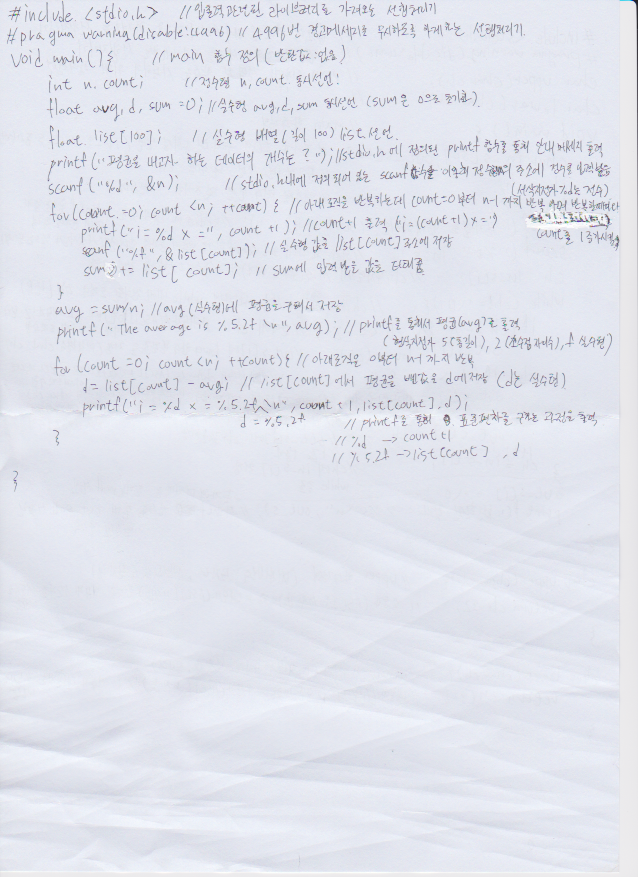 #include <stdio.h> // 입출력 관련된 라이브러리를 가져오는 선행처리기
#pragma warning(disable:4996) // 4996번 경고메세지를 무시하도록 하게 하는 선행처리기.
void main(){ // main 함수 정의 (반환값:없음)
int n, count; // 정수형 n, count 동시선언!
float avg, d, sum =0; // 실수형 avg, d, sum 동시선언 (sum은 0으로 초기화).
float list[100]; // 실수형 배열(길이 100) list 선언.
printf("평균을 내고자 하는 데이터의 개수는 ? "); // stdio.h에 정의된 printf 함수를 통해 안내 메세지 출력
scanf("%d", &n); // stdio.h내에 정의되어 있는 scanf 함수를 이용해 정수 n의 주소에 정수를 입력받음
(서식지정자 %d는 정수)
for(count =0; count <n; ++count) { // 아래 로직을 반복하는데 count=0부터 n-1 까지 반복 하며 반복할때마다
count를 1 증가시킴
printf("i = %d x =", count +1 ); // count+1 출력 (i=(count+1) x=)
scanf("%f", &list[count]); // 실수형 값을 list[count] 주소에 저장
sum += list[count]; // sum에 입력받은 값을 더해줌
}
avg = sum/n; // avg(실수형)에 평균을 구해서 저장
printf("The average is %5.2f \n", avg); // printf를 통해서 평균(avg)을 출력
(형식지정자 5 (총길이), 2 (소수점 자리수), f 실수형)
for (count =0; count <n; ++count){ // 아래로직을 0부터 n-1 까지 반복
d= list[count] - avg; // list[count]에서 평균을 뺀값을 d에 저장 (d는 실수형)
printf("i = %d x = %5.2f \n", count +1, list[count], d);
d = %5.2f // printf를 통해 표준편차를 구하는 과정을 출력
// %d → count+1
// %5.2f → list[count] , d
}
}